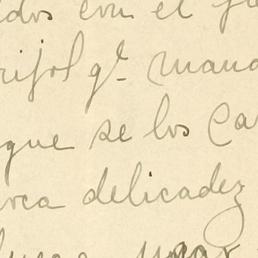 dos con el
rijol q.e mand
que se los Ca
rca delicadez